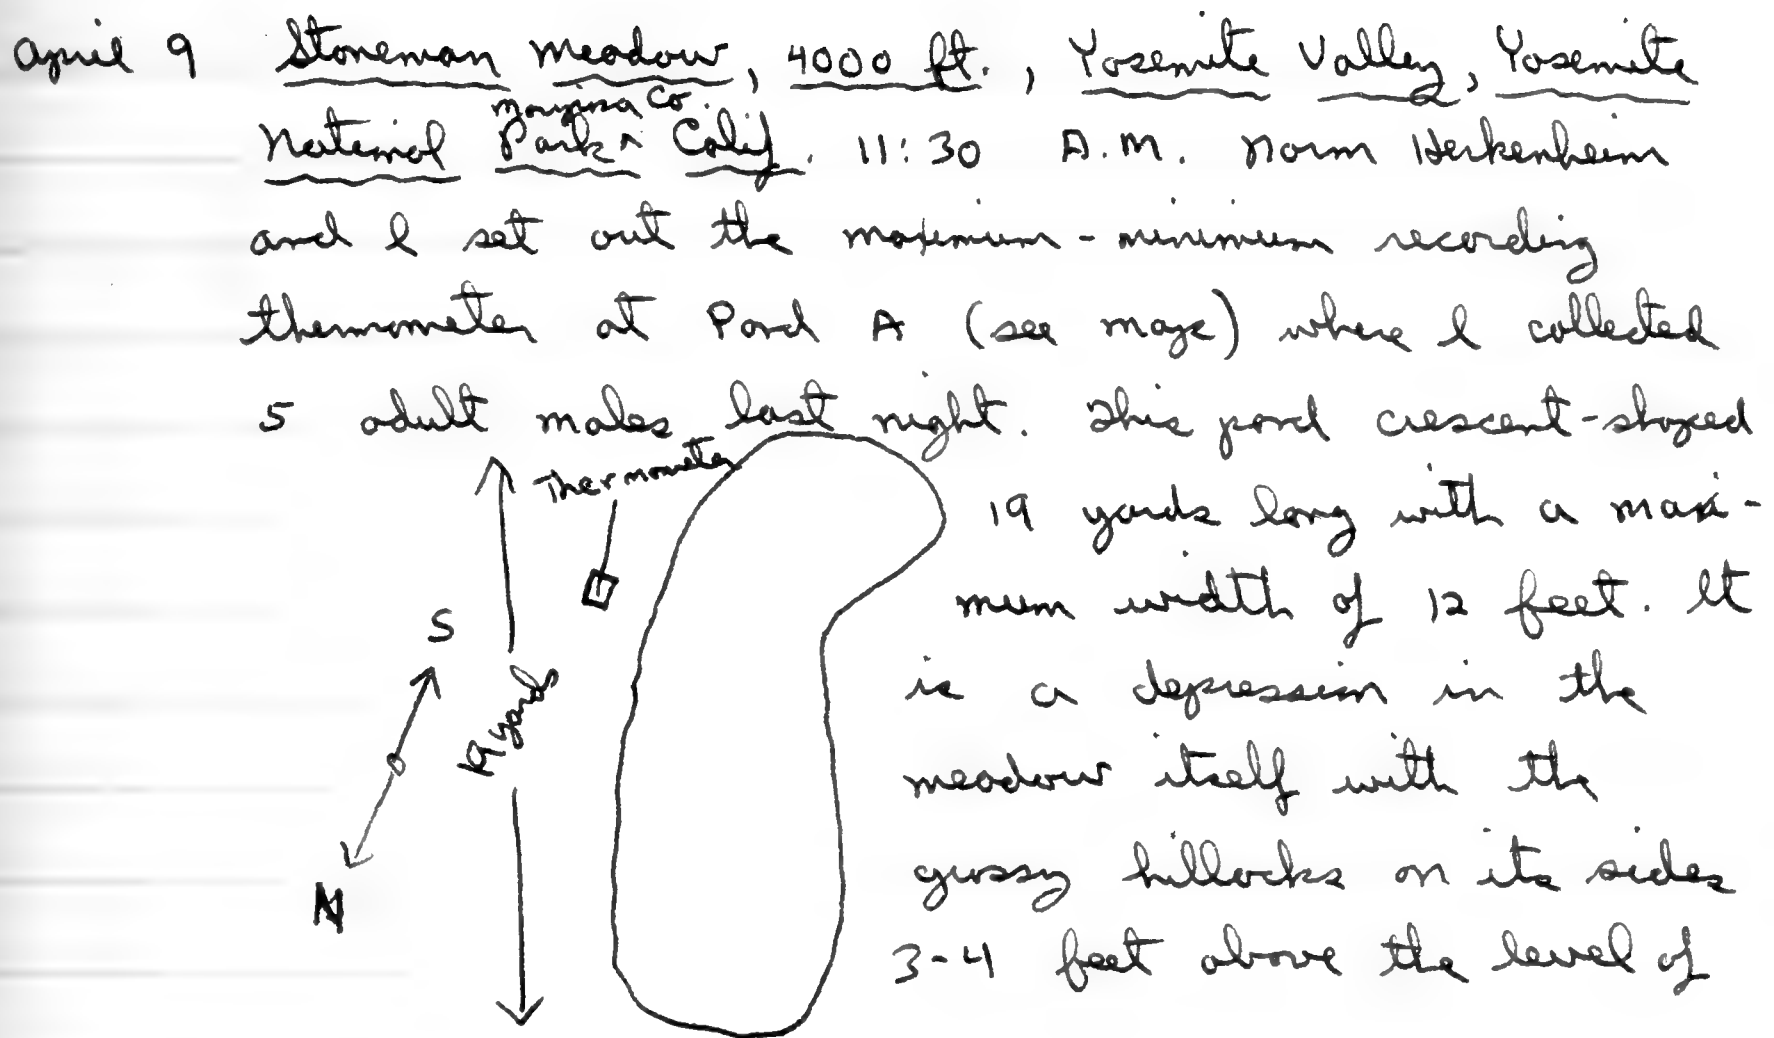 April 9 Stoneman Meadow, 4000 ft., Yosemite Valley, Yosemite
Mariposa Co.
National Park ^ Calif. 11:30 A.M. Norm Herkenheim
and I set out the maximum-minimum recording
thermometer at Pond A (see map) where I collected
5 adult males last night. This pond crescent-shaped
Thermometer
19 yards long with a maxi-
mum width of 12 feet. It
S
is a depression in the
19 yards
meadow itself with the
grassy hillocks on its sides
N
3-4 feet above the level of